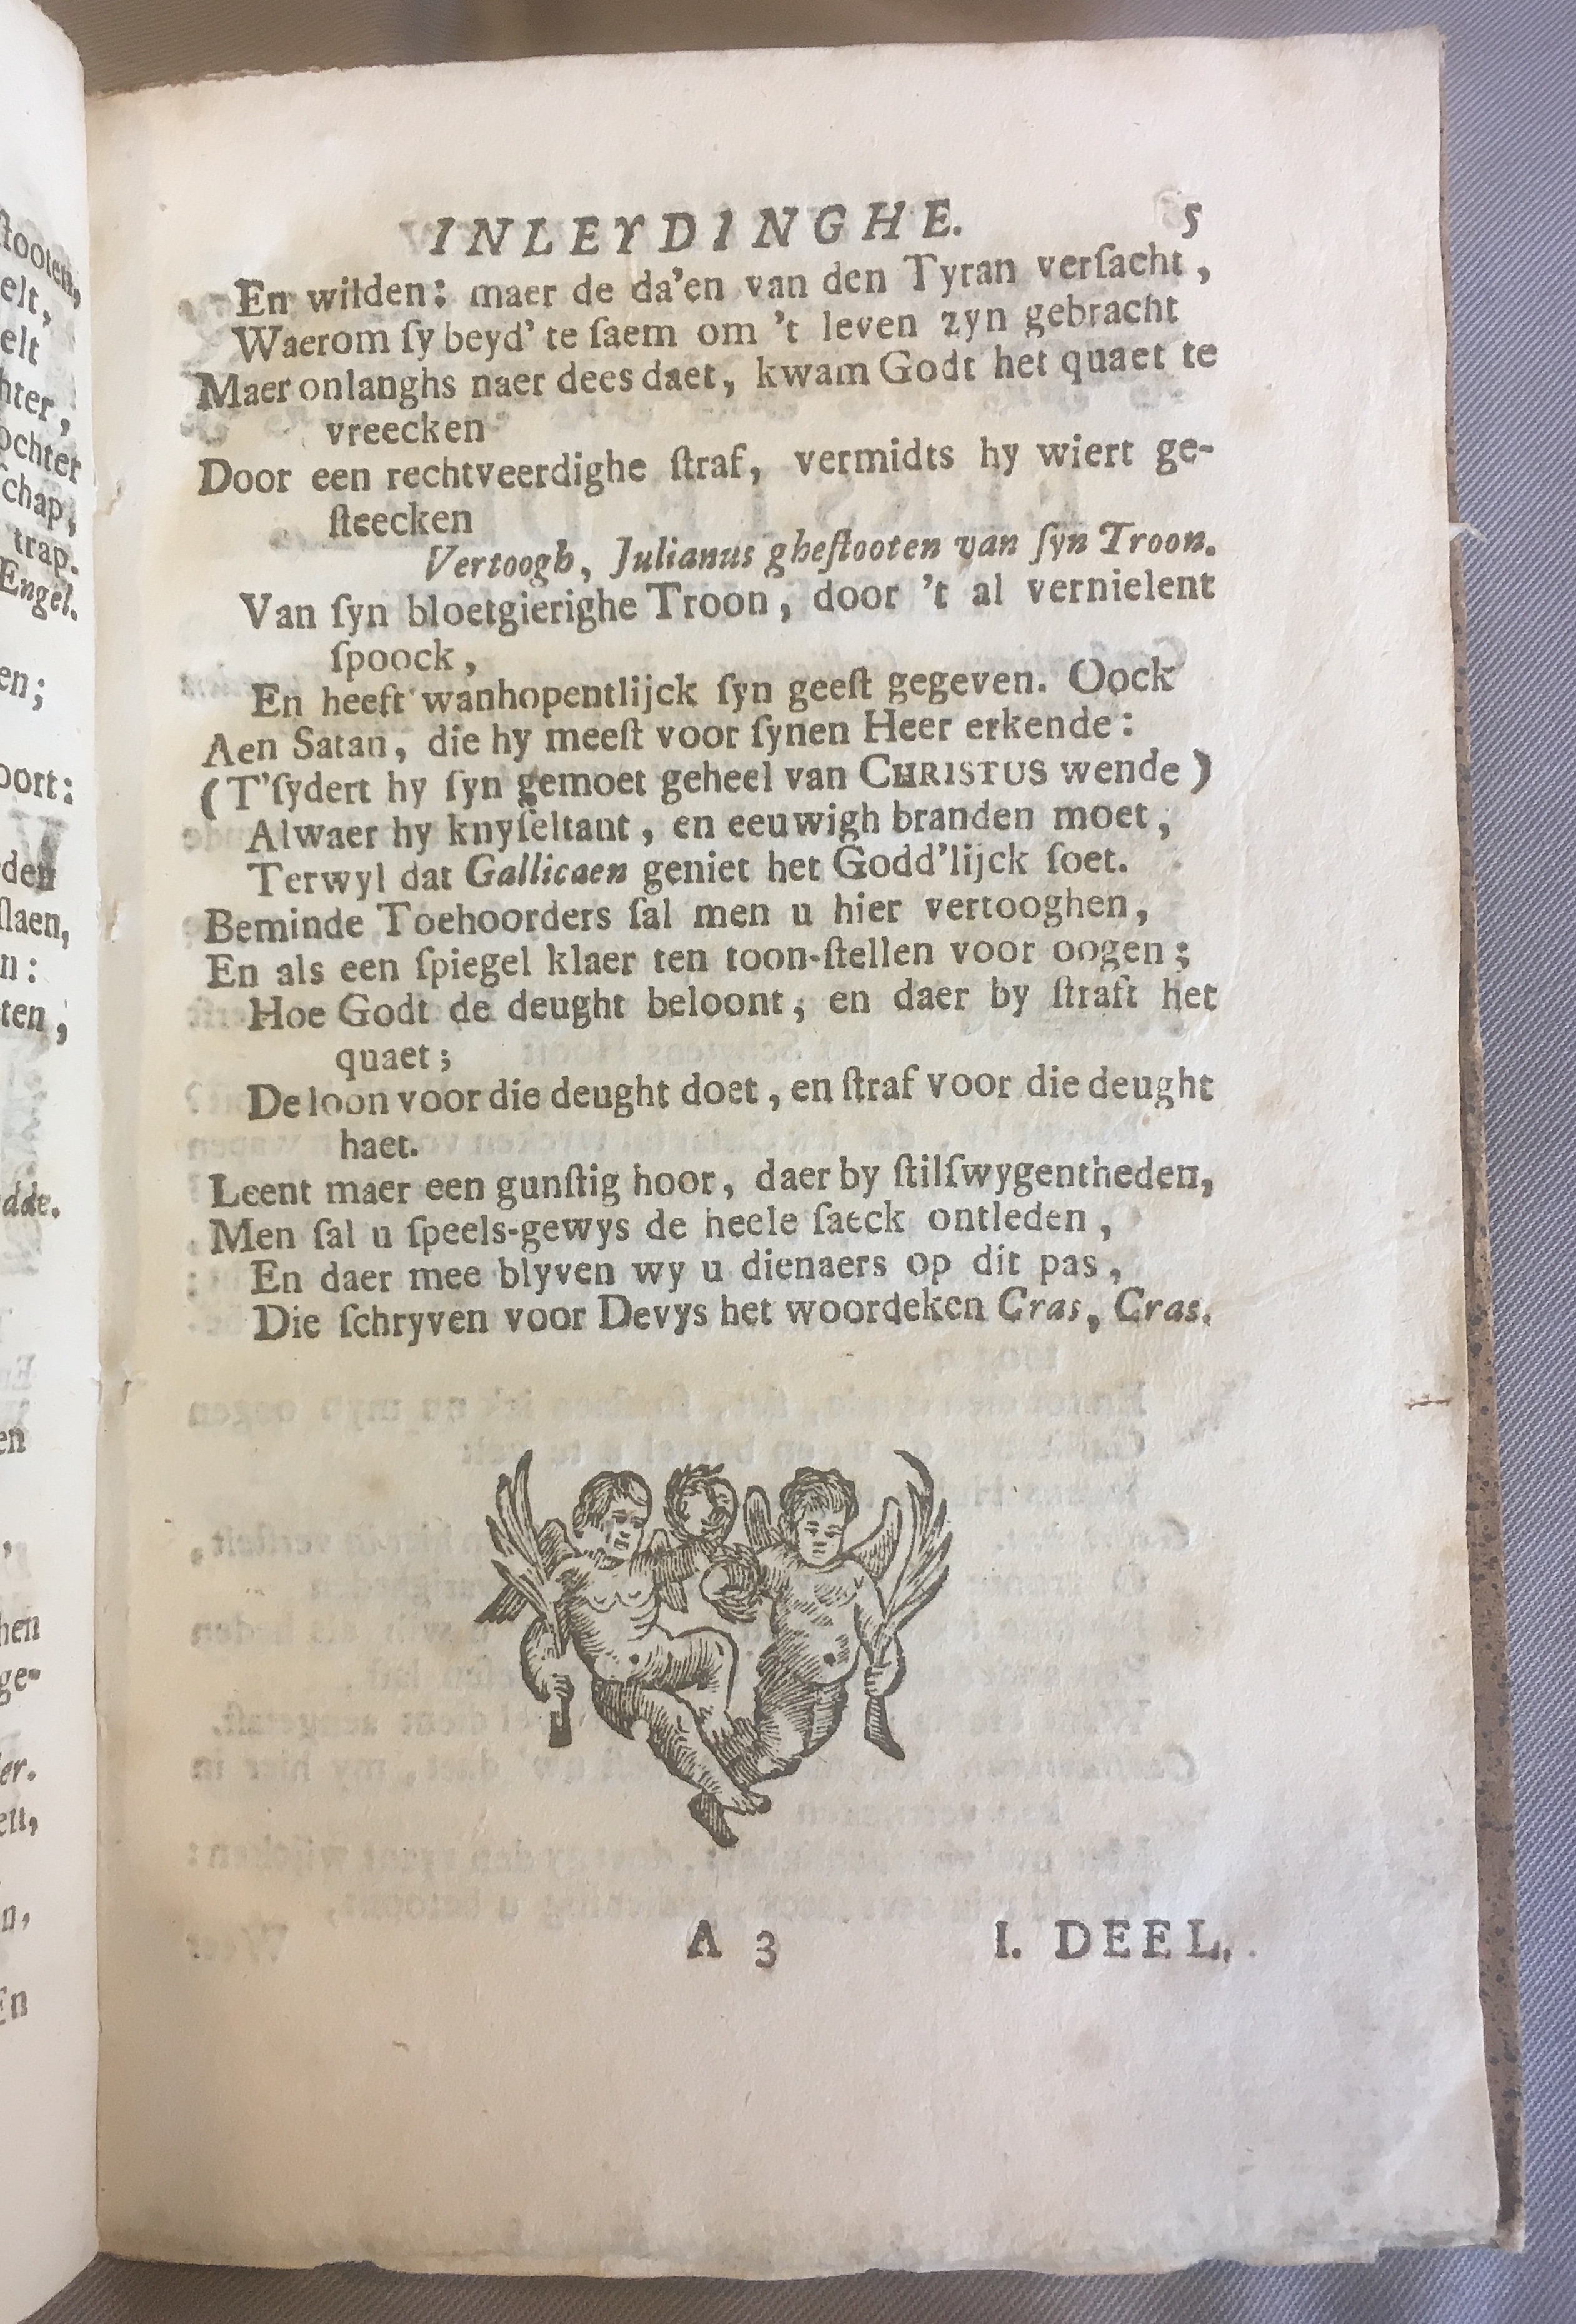 INLEYDINGHE. 5
En wilden: maer de da'en van den Tyran verſacht,
Waerom ſy beyd' te ſaem om 't leven zyn gebracht
Maer onlanghs naer dees daet, kwam Godt het quaet te
vreecken
Door een rechtveerdighe ſtraf, vermidts hy wiert ge-
ſteecken
Vertoogh, Julianus gheſtooten van ſyn Troon.
Van ſyn bloetgierighe Troon, door 't al vernielent
ſpoock,
En heeft wanhopentlijck ſyn geeſt gegeven. Oock
Aen Satan, die hy meeſt voor ſynen Heer erkende:
(T'ſydert hy ſyn gemoet geheel van CHRISTUS wende)
Alwaer hy knyſeltant, en eeuwigh branden moet,
Terwyl dat Gallicaen geniet het Godd'lijck ſoet.
Beminde Toehoorders ſal men u hier vertooghen,
En als een ſpiegel klaer ten toon-ſtellen voor oogen;
Hoe Godt de deught beloont, en daer by ſtraft het
quaet;
De loon voor die deught doet, en ſtraf voor die deught
haet.
Leent maer een gunſtig hoor, daer by ſtilſwygentheden,
Men ſal u ſpeels-gewys de heele ſaeck ontleden,
En daer mee blyven wy u dienaers op dit pas,
Die ſchryven voor Devys het woordeken Cras, Cras.
A 3 I. DEEL.